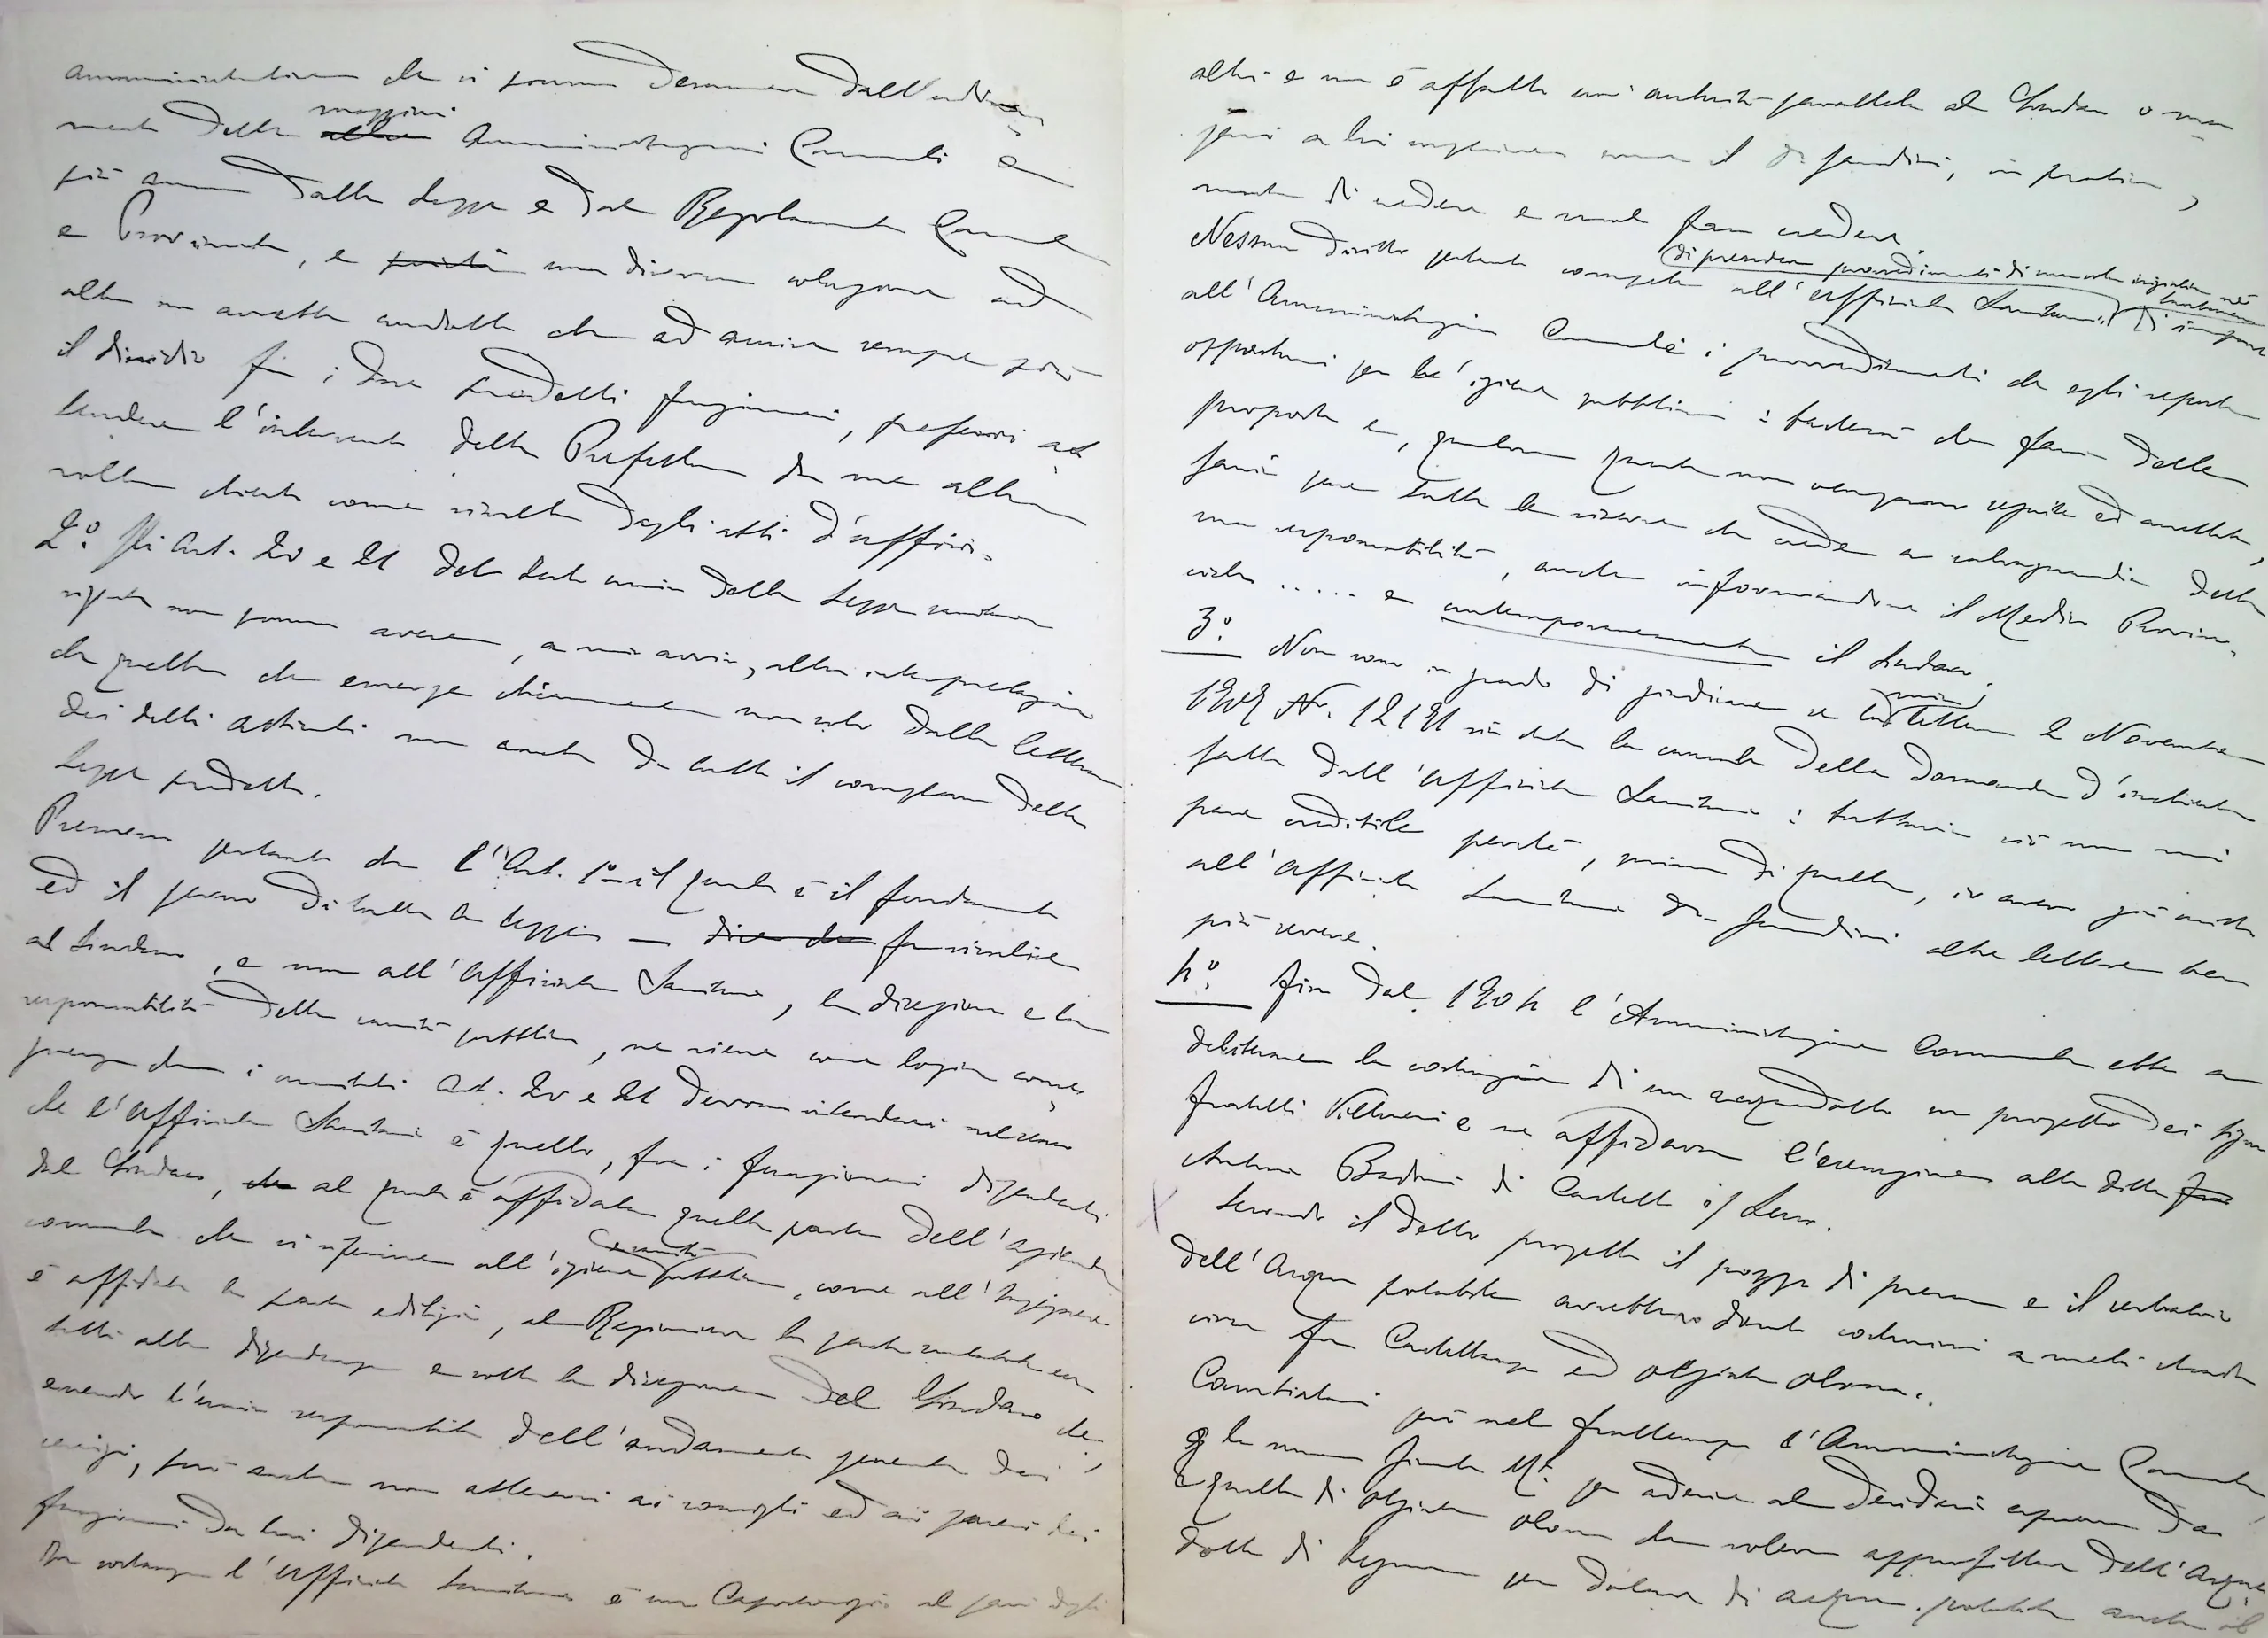 amministrativa che si possano desumere dall'anda
maggiori
mento delle altre Amministrazioni Comunali e
più ancora dalla Legge e dal Regolamento Comunale
e Provinciale, e poichè una diversa soluzione ad
altro non avrebbe condotto che ad acuire sempre più
il dissidio fra i due predetti funzionari, preferii at
tendere l'intervento della Prefettura da me allora
chiesto come risulta dagli atti d'ufficio.
2º. Gli Art. 20 e 21 del testo unico della Legge sanitaria
vigente non possono avere, a mio avviso, altra interpretazione
che quella che emerge chiaramente non solo dalla lettera
dei detti articoli ma anche da tutto il complesso della
Legge predetta.
Premesso pertanto che l'Art. 1º il quale è il fondamento
ed il perno di tutta la legge — dice che fa risalire
al Sindaco, e non all'Ufficiale Sanitario, la direzione e la
responsabilità della sanità pubblica, ne viene come logica conse
guenza che i succitati Art. 20 e 21 devono intendersi nel senso
che l'Ufficiale Sanitario è quello, fra i funzionari dipendenti
dal Sindaco, che al quale è affidata quella parte dell'azienda
sanità
comunale che si riferisce all'igiene pubblica, come all'Ingegnere
è affidata la parte edilizia, al Ragioniere la parte contabile ecc
tutti alla dipendenza e sotto la direzione del Sindaco che,
essendo l'unico responsabile dell'andamento generale dei
servizi, può anche non attenersi ai consigli ed ai pareri dei
funzionari da lui dipendenti.
In sostanza l'Ufficiale Sanitario è un Caposervizio al pari degli
altri e non è affatto un'autorità parallela al Sindaco o ma
gari a lui superiore come il Dr Jandini, in pratica,
mostra di credere e vuol far credere.
di prendere provvedimenti di sua sola iniziativa nè
tantomeno
Nessun diritto pertanto compete all'Ufficiale Sanitario di imporre
all'Amministrazione Comunale i provvedimenti che egli reputa
opportuni per l'igiene pubblica: basterà che faccia delle
proposte e, qualora queste non vengano seguite ed accettate,
farà pure tutte le riserve che crede a salvaguardia della
sua responsabilità, anche informandone il Medico Provin
ciale ..... e contemporaneamente il Sindaco.
3º. Non sono in grado di giudicare se la
mia
lettera 2 Novembre
1909 Nr. 12191 sia stata la causale della domanda d'inchiesta
fatta dall'Ufficiale Sanitario: tuttavia ciò non mi
pare credibile perchè, prima di quella, io avevo già
all'Ufficiale Sanitario Dr. Jandini altre lettere ben
più severe.
4º. Fin dal 1904 l'Amministrazione Comunale ebbe a
deliberare la costruzione di un acquedotto su progetto dei Sign.
fratelli Villoresi e ne affidava l'esecuzione alla ditta
Antonio Badoni di Castello s/ Lecco.
X Secondo il detto progetto il pozzo di presa e il serbatoio
dell'Acqua potabile avrebbero dovuto costruirsi a metà strada
circa fra Castellanza ed Olgiate Olona.
Cambiatasi però nel frattempo l'Amministrazione Comunale
la nuova Giunta Mle. per aderire al desiderio espresso da
quella di Olgiate Olona che voleva approfittare dell'Acque
dotto di Legnano per dotarsi di acqua potabile anche il